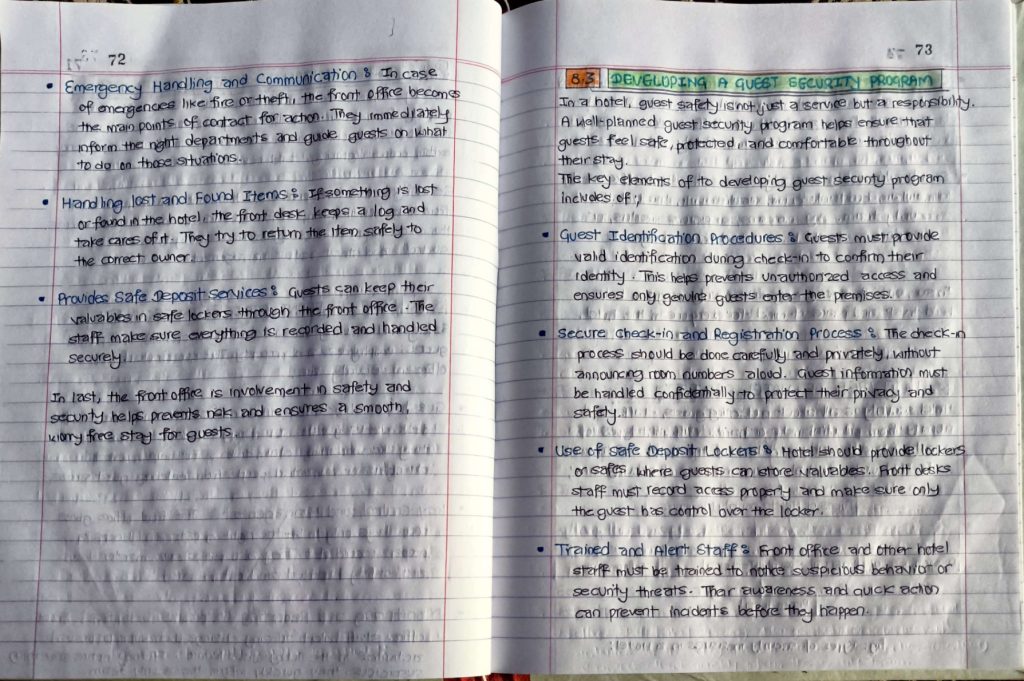 72
• Emergency Handling and Communication : In case
of emergencies like fire or theft, the front office becomes
the main points of contact for action. They immediately
inform the right departments and guide guests on what
to do on those situations.
• Handling lost and Found Items : If something is lost
or found in the hotel, the front desk keeps a log and
take cares of it. They try to return the item safely to
the correct owner.
• Provides Safe Deposit Services : Guests can keep their
valuables in safe lockers through the front office. The
staff make sure everything is recorded and handled
securely.
In last, the front office is involvement in safety and
security helps prevents risk and ensures a smooth,
worry free stay for guests.
73
8.3 DEVELOPING A GUEST SECURITY PROGRAM
In a hotel, guest safety is not just a service but a responsibility.
A well-planned guest security program helps ensure that
guests feel safe, protected, and comfortable throughout
their stay.
The key elements of to developing guest security program
includes of;
• Guest Identification Procedures : Guests must provide
valid identification during check-in to confirm their
identity. This helps prevents unauthorized access and
ensures only genuine guests enter the premises.
• Secure Check-in and Registration Process : The check-in
process should be done carefully and privately, without
announcing room numbers aloud. Guest information must
be handled confidentially to protect their privacy and
safety.
• Use of Safe Deposit Lockers : Hotel should provide lockers
or safes, where guests can store valuables. Front desks
staff must record access properly and make sure only
the guest has control over the locker.
• Trained and Alert Staff : Front office and other hotel
staff must be trained to notice suspicious behavior or
security threats. Their awareness and quick action
can prevent incidents before they happen.